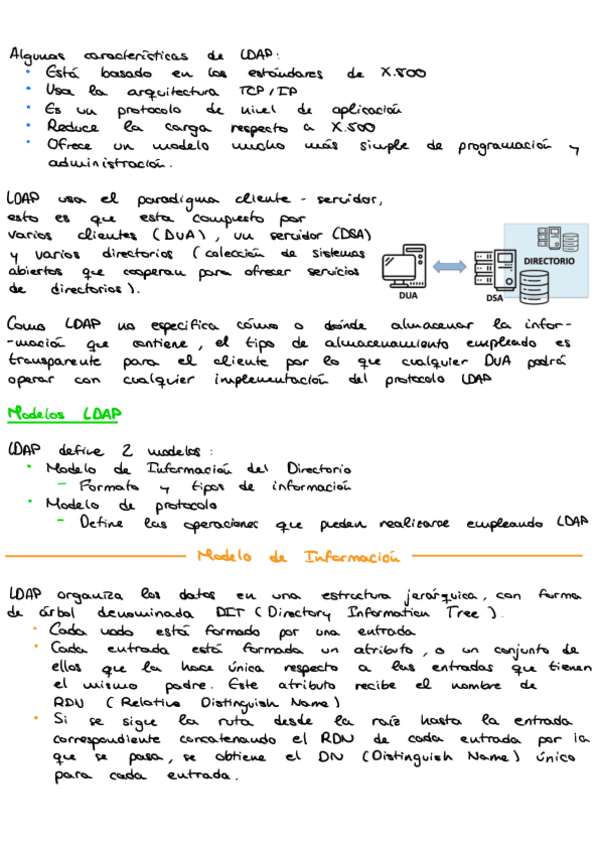 Algunas características de LDAP:
• Está basado en los estándares de X.500
• Usa la arquitectura TCP/IP
• Es un protocolo de nivel de aplicación
• Reduce la carga respecto a X.500
• Ofrece un modelo mucho más simple de programación y
administración.
LDAP usa el paradigma cliente - servidor,
esto es que esta compuesto por
varios clientes (DUA), un servidor (DSA)
y varios directorios (colección de sistemas
abiertos que cooperan para ofrecer servicios
de directorios).
DIRECTORIO
DUA
DSA
Como LDAP no especifica cómo o dónde almacenar la infor-
-mación que contiene, el tipo de almacenamiento empleado es
transparente para el cliente por lo que cualquier DUA podrá
operar con cualquier implementación del protocolo LDAP
Modelos LDAP
LDAP define 2 modelos:
• Modelo de Información del Directorio
– Formato y tipos de información
• Modelo de protocolo
– Define las operaciones que pueden realizarse empleando LDAP
Modelo de Información
LDAP organiza los datos en una estructura jerárquica, con forma
de árbol denominada DIT (Directory Information Tree).
• Cada nodo está formado por una entrada
• Cada entrada está formada un atributo, o un conjunto de
ellos que la hace única respecto a las entradas que tienen
el mismo padre. Este atributo recibe el nombre de
RDN (Relative Distinguish Name)
• Si se sigue la ruta desde la raíz hasta la entrada
correspondiente concatenando el RDN de cada entrada por la
que se pasa, se obtiene el DN (Distinguish Name) único
para cada entrada.